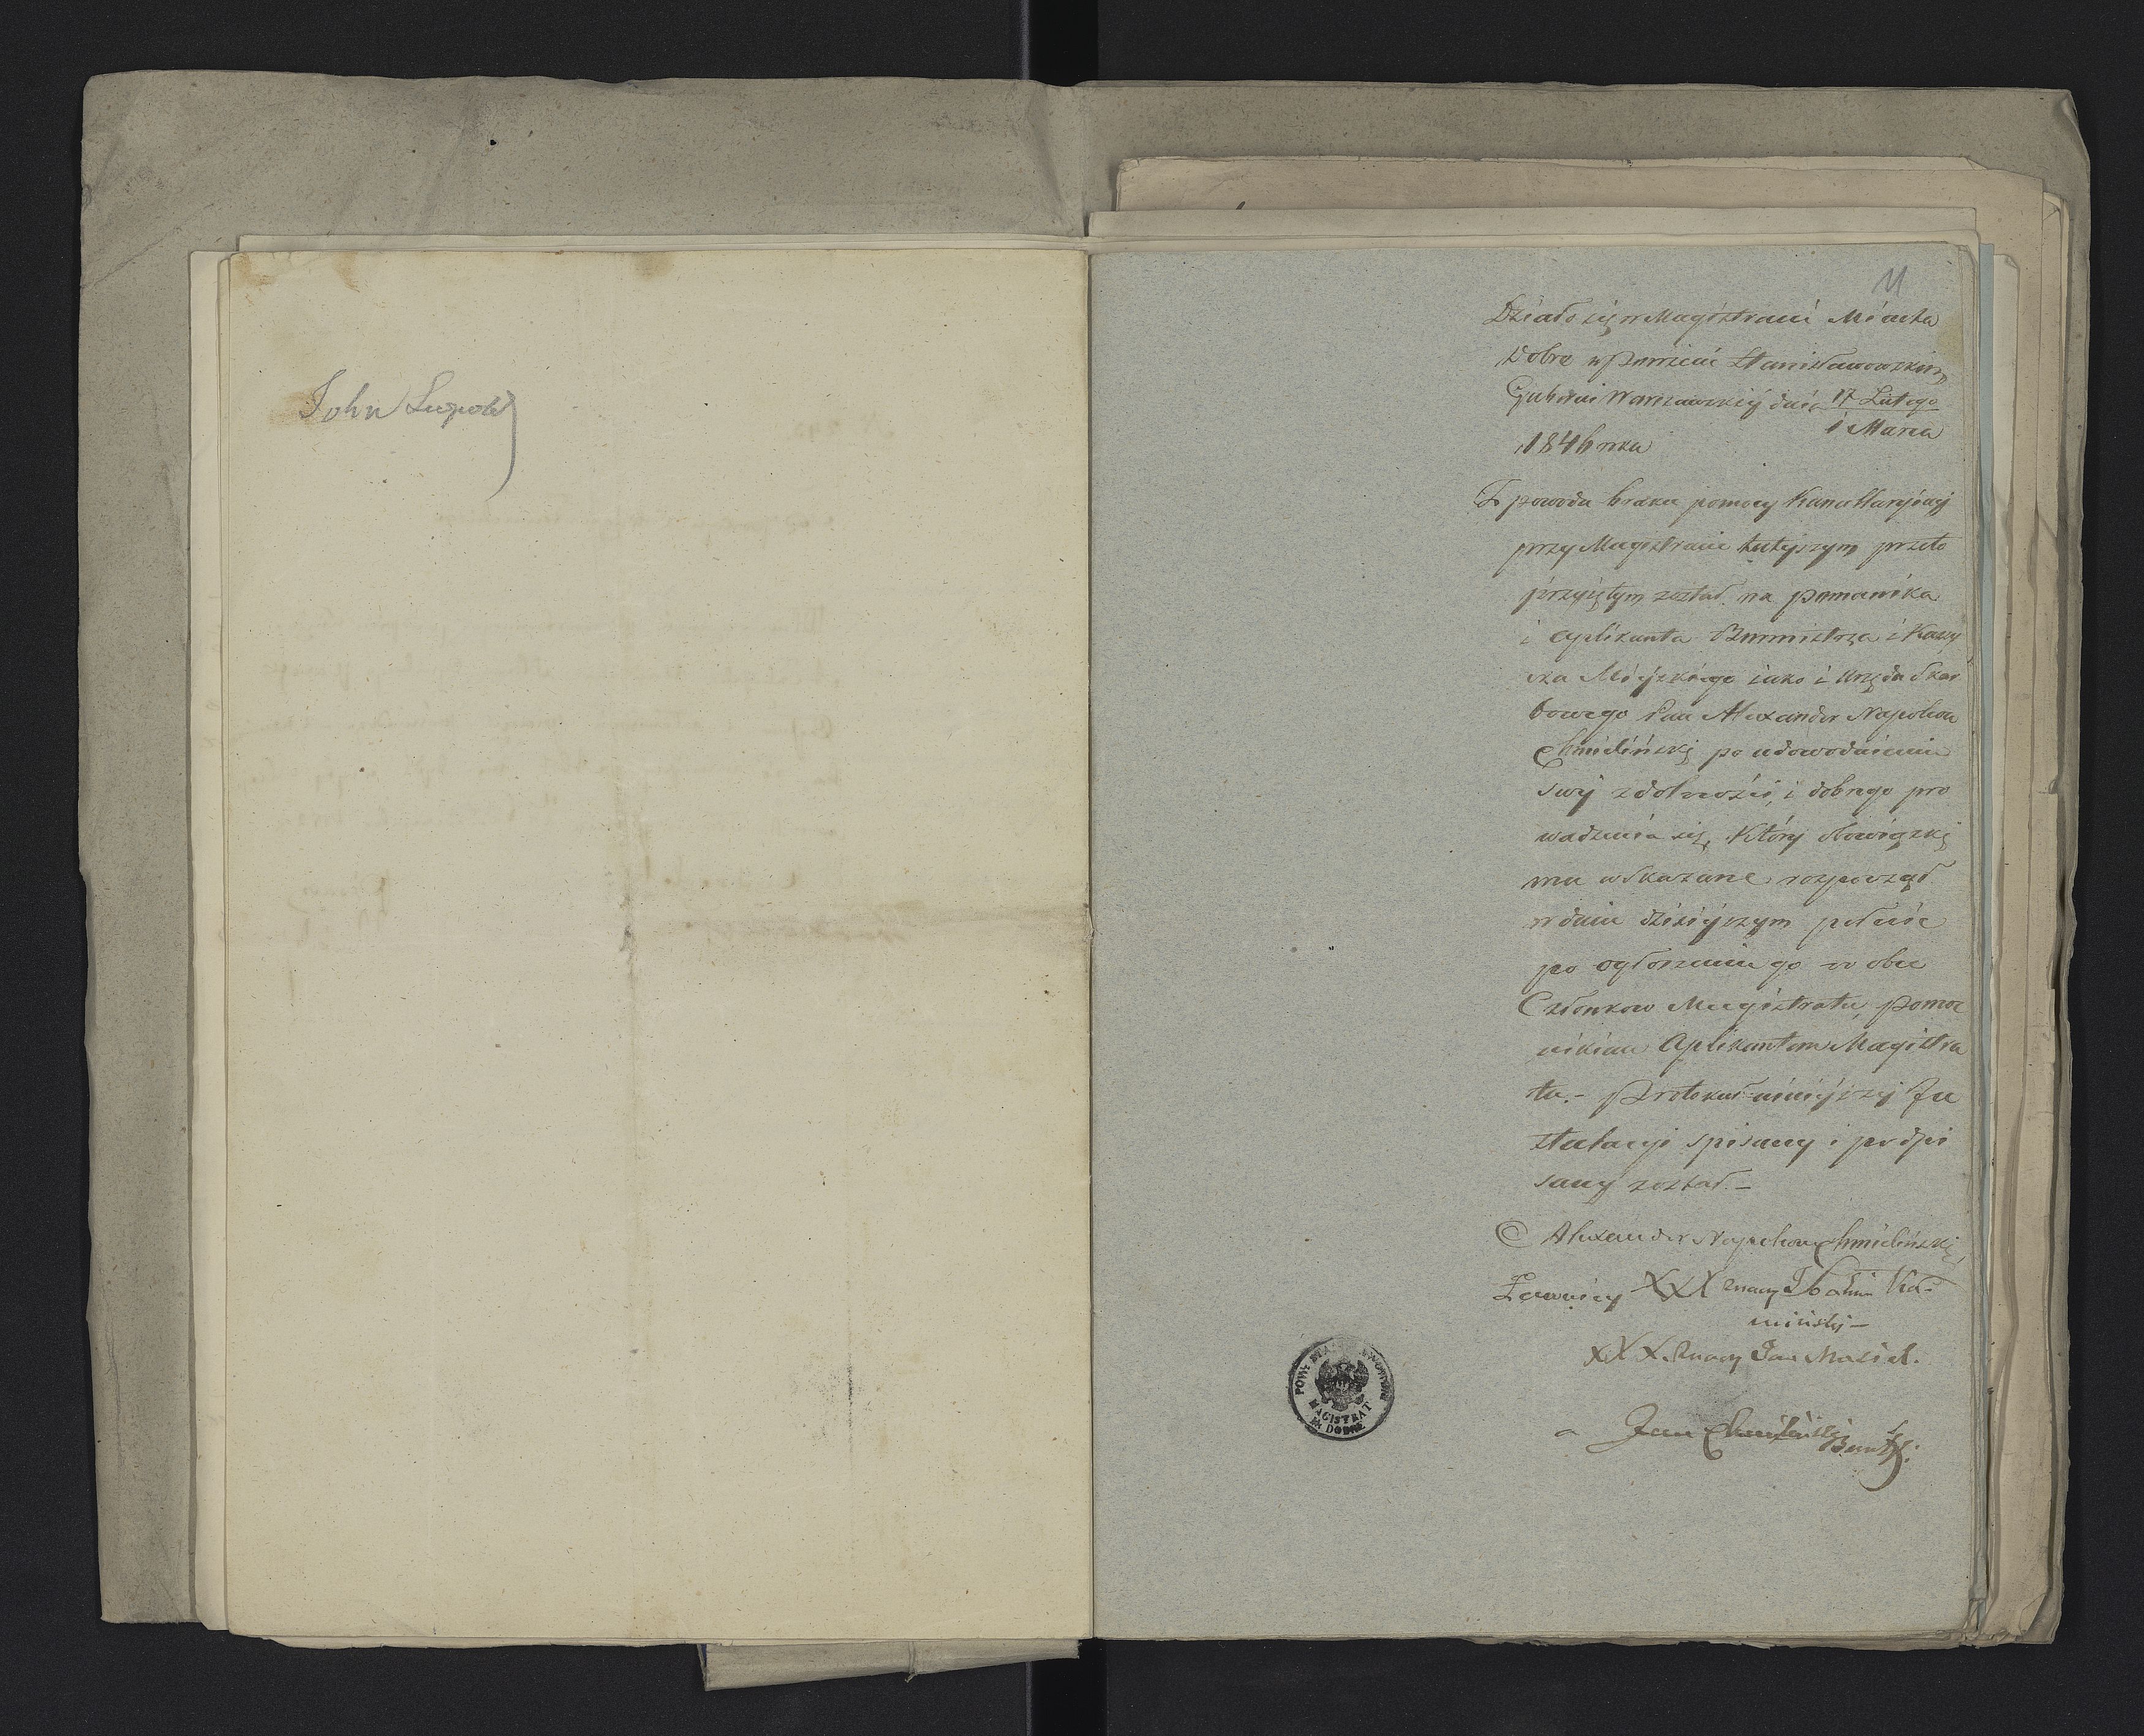 John
11
Działo się w Magistracie Miasta
Dobre w Powiecie Stanisławowskim
Gubernii Warszawskiéj dnia 17 Lutego
1 Marca
1846 roku
Z powodu braku pomocy Kancellaryinéj
przy Magistracie tutéjszym przeto
przyiętym został na pomocnika
i Aplikanta Burmistrza i Kassy
era Mieyskiego iako i Urzędu Skar
bowego Pan Alexander Napoleon
Chmieliński po udowodnieniu
swéj zdolności, i dobrego pro
wadzenia się, Który obowiązki
mu wskazane rozpoczął
w dniu dzisiéjszym
po ogłoszeniu go w obec
Członkow Magistratu, pomoc
nikiem Aplikantem Magistra
tu.- Protokuł niniéjszéj In
stalacyi spisany i podpi
sany został.-
Alexander Napoleon Chmieliński
Ławnicy XXX znaczy Ka-
miński -
XXX. Znaczy Jan
Jan Chmieliński Burmtz:
POWT STA WOWSKI
MAGISTRAT
M. DOBRE